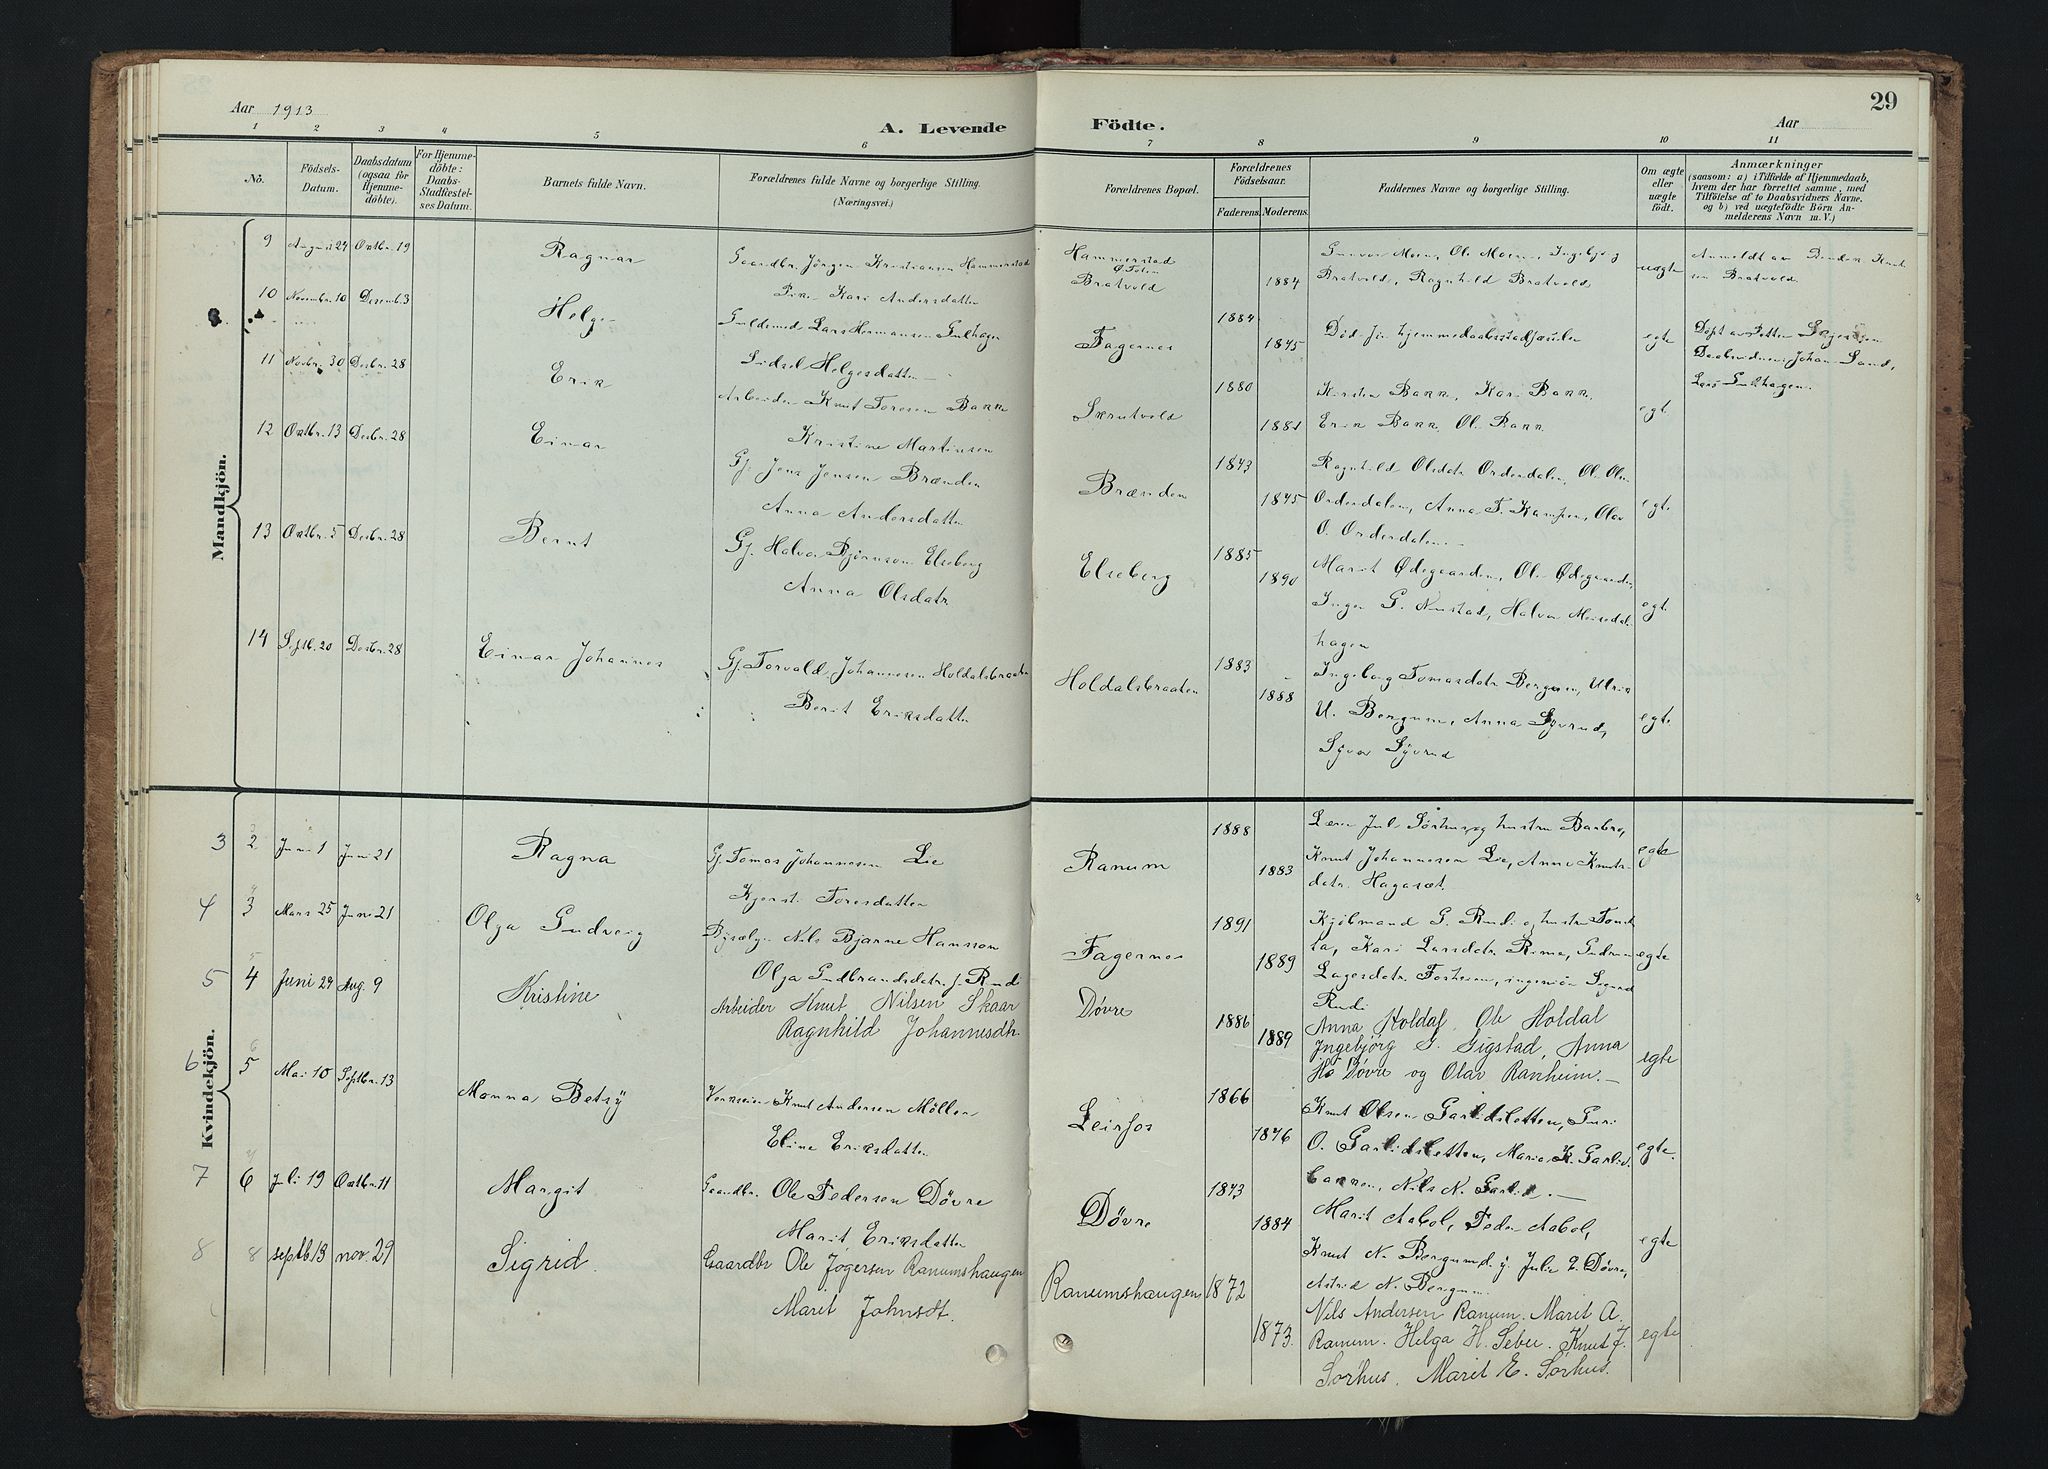 Aar 1913
A. Levende Födte.
Aar
29
1 2 3 4 5 6 7 8 9 10 11
No.
Födsels-
Datum.
Daabsdatum
(ogsaa for
Hjemme-
döbte).
For Hjemme-
döbte:
Daabs-
Stadfæstel-
ses Datum.
Barnets fulde Navn.
Forældrenes fulde Navne og borgerlige Stilling.
(Næringsvei.)
Forældrenes Bopæl.
Forældrenes
Födselsaar.
Faderens. Moderens.
Faddernes Navne og borgerlige Stilling.
Om ægte
eller
uægte
födt.
Anmærkninger
(saasom: a) i Tilfælde af Hjemmedaab,
hvem der har forrettet samme, med
Tilföielse af to Daabsvidners Navne.
og b) ved uægtefödte Börn An-
melderens Navn m. V.)
Mandkjön.
9 August 24 Oktbr. 19 Ragnar Gaardbr. Jörgen Kristiansen Hammerstad
Pike Kari Andersdatter
Hammerstad
Ø Toten
Bratvold
1884
Gunvor Moen, Ole Moen, Ingebjørg
Bratvold, Ragnhild Bratvold
uegte
Anmeldt av Knut
Bratvold
10 Novembr. 10 Desemb. 3 Helge Guldsmed Lars Hermansen Gulhagen
Sidsel Helgesdatter
Fagernes
1884
1845
Død før hjemmedaabsstadfæstelse
egte
Døpt av Petter
Daabsvidner Johan Sand,
Lars Gulhagen.
11 Novbr. 30 Desbr. 28 Erik Arbeider Knut Toresen Bakke
Kristine Martinsen
Skrutvold
1880
1881
Kirsten Bakk, Kari Bakk,
Erik Bakk, Ole Bakk
egt.
12 Oktbr. 13 Desbr. 28 Einar Gj. Jens Jensen Brænden
Anna Andersdatter
Brænden
1843
1845
Ragnhild Olsdatr. Orderdalen, Ole Olsen
Orderdalen, Anna T. Kampen, Olav
O. Orderdalen.
egte
13 Oktbr. 5 Desbr. 28 Bernt Gj. Halvor Bjørnson Elseberg
Anna Olsdatr.
Elseberg
1885
1890
Marit Ødegaarden, Ole Ødegaarden,
Inger G. Neristad, Halvor Meisdals-
hagen
egt.
14 Septb. 20 Desbr. 28 Einar Johannes Gj. Torvald Johannesen Holdalsbraaten
Berit Eriksdatter
Holdalsbraaten
1883
1888
Ingeborg Tomasdatr. Bergum, Ulrik
U. Bergum, Anna Syvrud,
Syver Syvrud
egte
Kvindekjön.
3 2 Juni 1 Juni 21 Ragna Gj. Tomas Johannesen Lie
Kjersti Toresdatter
Ranum
1888
1883
Lærer Jul. Sørhus og hustru Barbro,
Knut Johannesen Lie, Anne Knuts-
datr. Hagaset.
egte
4 3 Mars 25 Juni 21 Olga Gudveig Nils Bjarne Hansson
Olga Gudbrandsdatr. f. Rudi
Fagernes
1891
1889
Kjøbmand G. Rudi og hustru
Kari Larsdatr. Rime, Gudrun
Lagesdatr. Fosheim, ingeniør Sigurd
Rudi
egte
5 4 Juni 24 Aug. 9 Kristine Arbeider Knut Nilsen Skaar
Ragnhild Johannesdtr.
Døvre
1886
1889
Anna Holdal, Ole Holdal
Ingebjørg G. Gigstad, Anna
Ho Døvre og Olav Ranheim.
egte
6 5 Mai 10 Septbr. 13 Monna Betsy Verkseier Knut Andersen Møller
Eline Eriksdatter
Leirfos
1866
1876
Knut Olsen Garlidsletten, Guri
O. Garlidsletten, Maria K. Garlid-
bakken, Nils N. Garlid.
egte.
7 6 Juli 19 Oktbr. 11 Margit Gaardbr. Ole Pedersen Døvre
Marit Eriksdatter
Døvre
1873
1884
Marit Aabol, Peder Aabol,
Knut N. Bergum d. y. Julie P. Døvre,
Astrid N. Bergum.
egte
8 8 septb. 13 nov. 29 Sigrid. Gaardbr Ole Jøgersen Ranumshaugen
Marit Johnsdt.
Ranumshaugen
1872
1873.
Nils Andersen Ranum. Marit A.
Ranum. Helga H. Sebu. Knut J.
Sørhus. Marit E. Sørhus.
egte